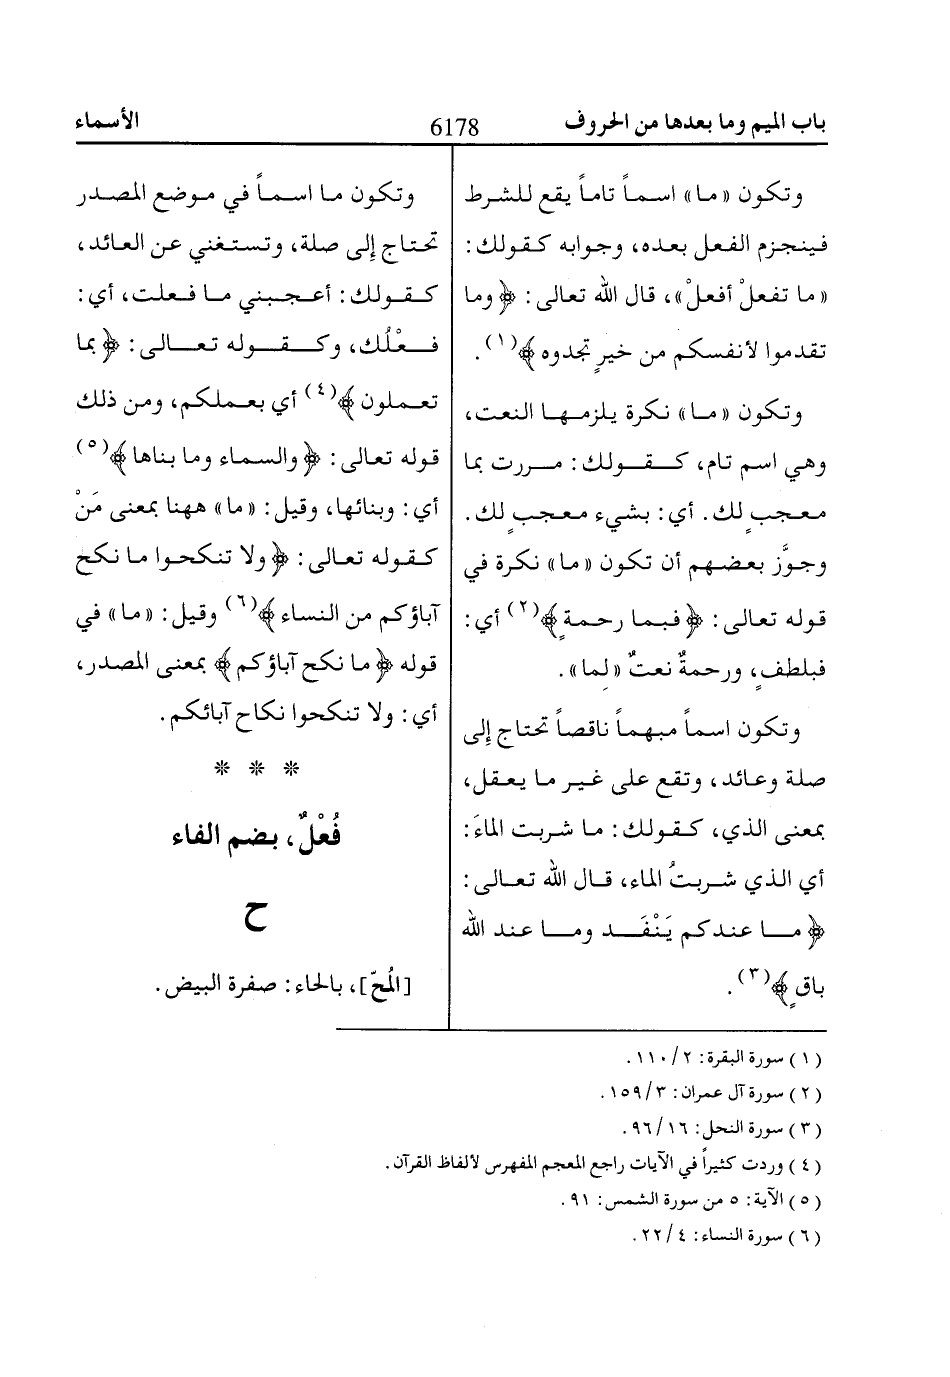 باب الميم وما بعدها من الحروف 6178 الأسماء
وتكون «ما» اسماً تاماً يقع للشرط
فينجزم الفعل بعده، وجوابه كقولك:
«ما تفعلْ أفعلْ»، قال الله تعالى: ﴿وما
تقدموا لأنفسكم من خيرٍ تجدوه﴾(١).
وتكون «ما» نكرة يلزمها النعت،
وهي اسم تام، كقولك: مررت بما
معجبٍ لك. أي: بشيء معجبٍ لك.
وجوَّز بعضهم أن تكون «ما» نكرة في
قوله تعالى: ﴿فبما رحمةٍ﴾(٢) أي:
فبلطفٍ، ورحمةٌ نعتٌ «لِما».
وتكون اسماً مبهماً ناقصاً تحتاج إلى
صلة وعائد، وتقع على غير ما يعقل،
بمعنى الذي، كقولك: ما شربت الماءَ:
أي الذي شربتُ الماء، قال الله تعالى:
﴿ما عندكم يَنْفَد وما عند الله
باقٍ﴾(٣).
وتكون ما اسماً في موضع المصدر
تحتاج إلى صلة، وتستغني عن العائد،
كقولك: أعجبني ما فعلت، أي:
فعْلُك، وكقوله تعالى: ﴿بما
تعملون﴾(٤) أي بعملكم، ومن ذلك
قوله تعالى: ﴿والسماء وما بناها﴾(٥)
أي: وبنائها، وقيل: «ما» ههنا بمعنى مَنْ
كقوله تعالى: ﴿ولا تنكحوا ما نكح
آباؤكم من النساء﴾(٦) وقيل: «ما» في
قوله ﴿ما نكح آباؤكم﴾ بمعنى المصدر،
أي: ولا تنكحوا نكاح آبائكم.
* * *
فُعْلٌ، بضم الفاء
ح
[المُحّ]، بالحاء: صفرة البيض.
(١) سورة البقرة: ٢/١١٠.
(٢) سورة آل عمران: ٣/١٥٩.
(٣) سورة النحل: ١٦/٩٦.
(٤) وردت كثيراً في الآيات راجع المعجم المفهرس لألفاظ القرآن.
(٥) الآية: ٥ من سورة الشمس: ٩١.
(٦) سورة النساء: ٤/٢٢.